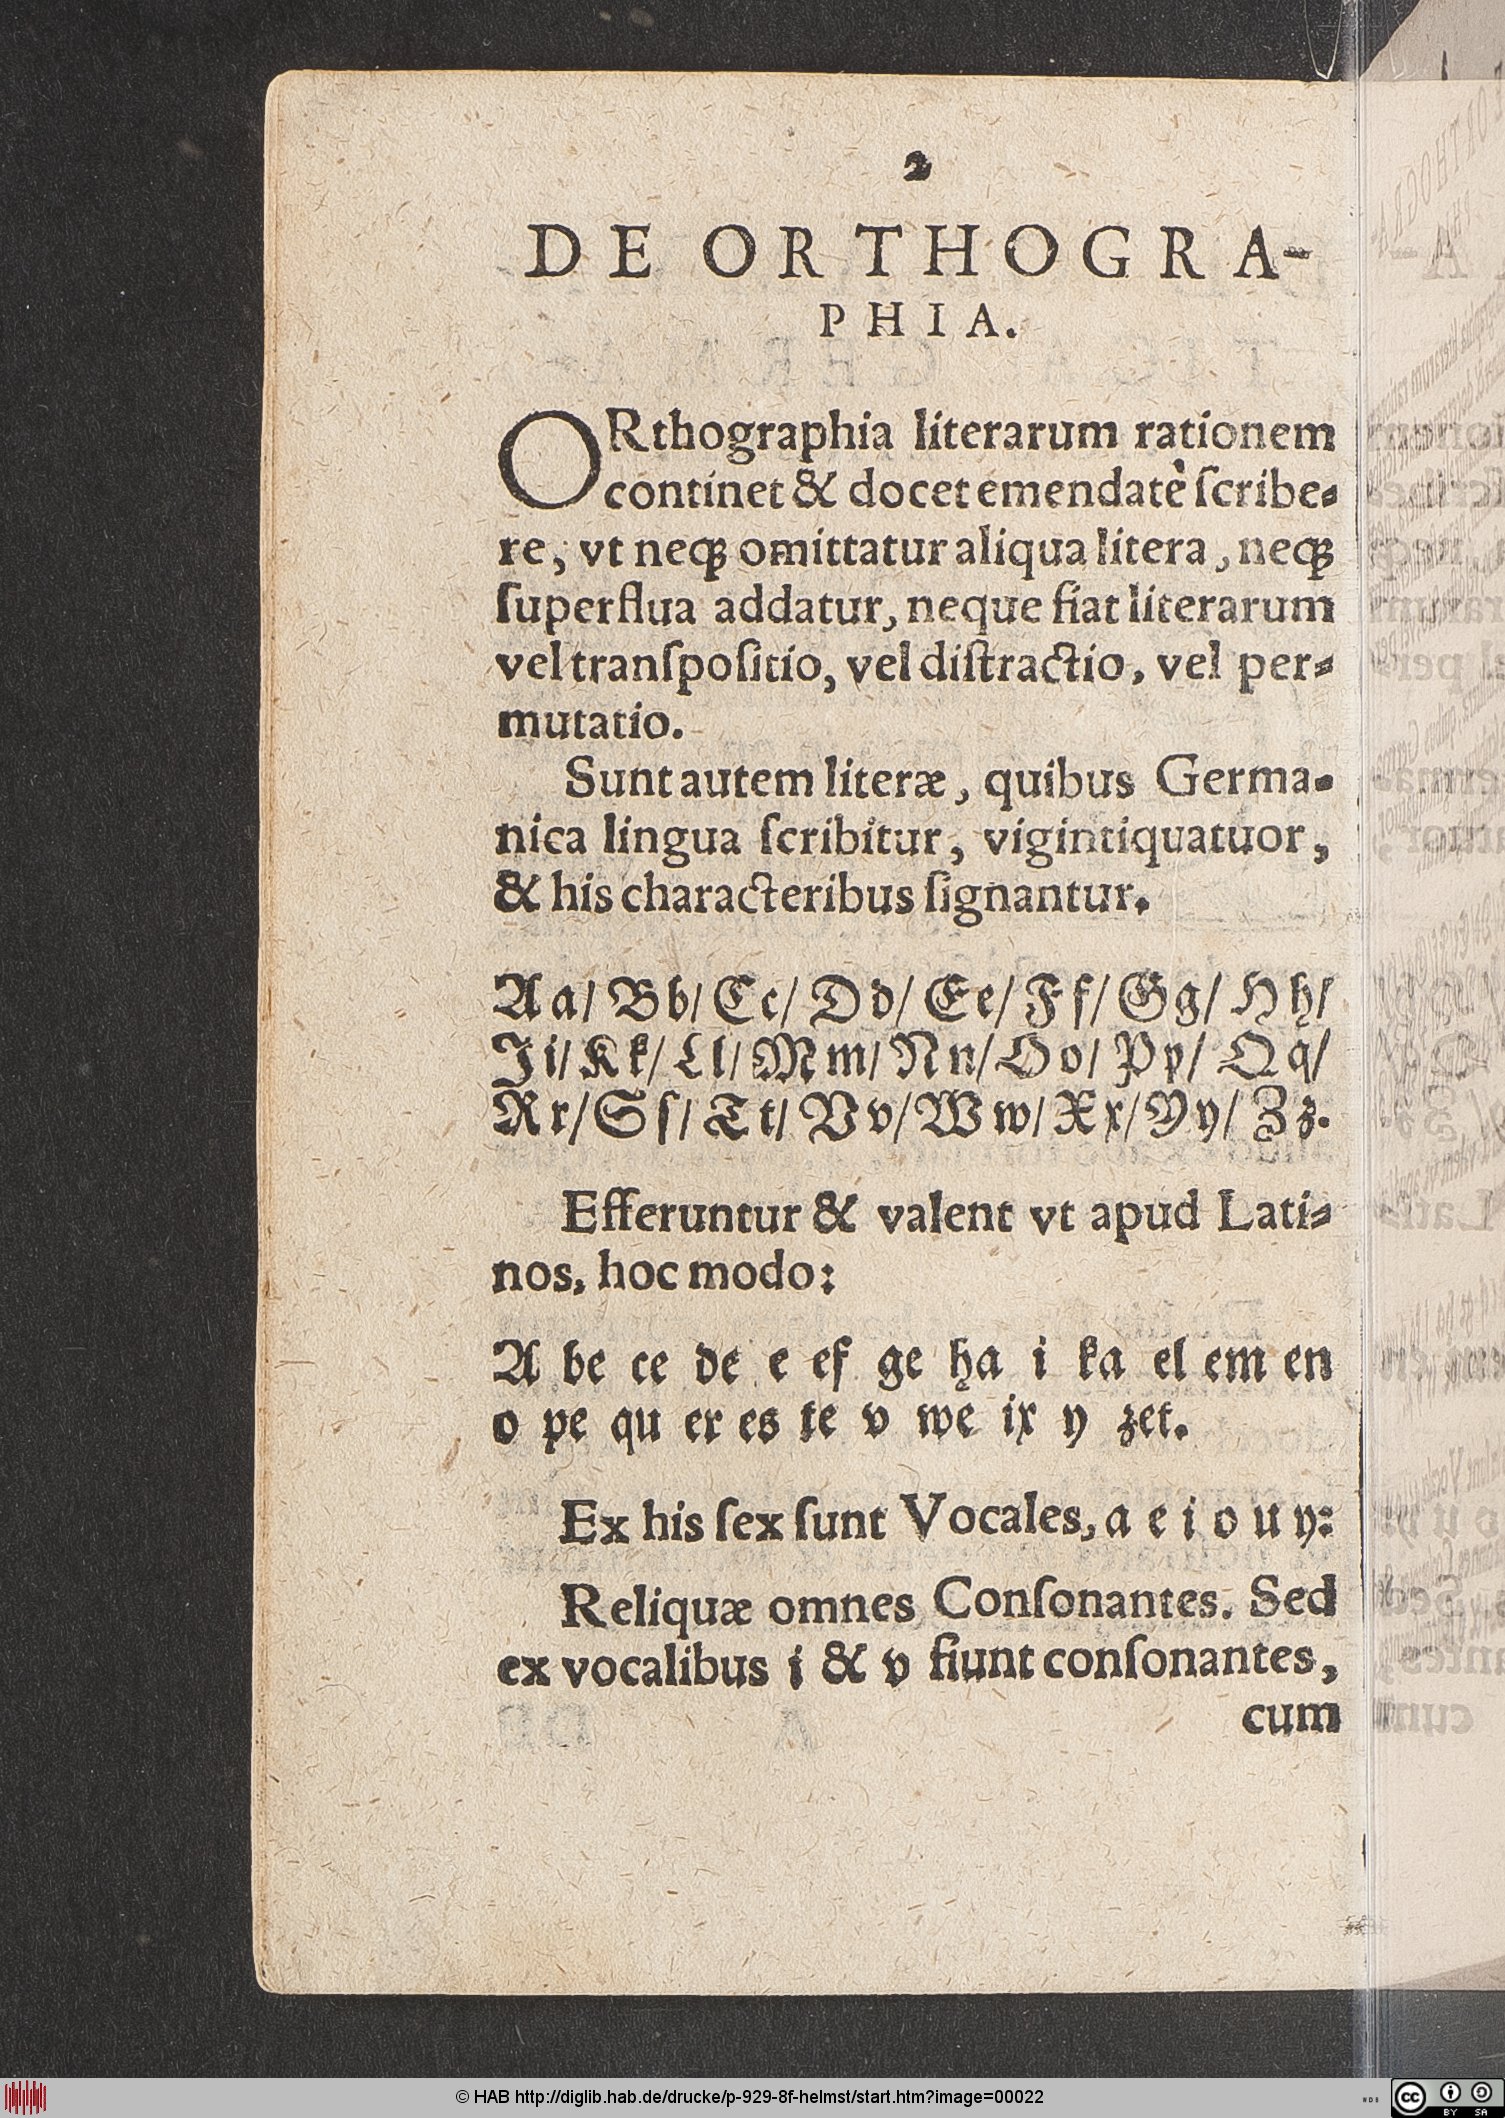 2
DE ORTHOGRA-
PHIA.
ORthographia literarum rationem
continet & docet emendatè ſcribe-
re, vt neqꝫ omittatur aliqua litera, neqꝫ
ſuperflua addatur, neque fiat literarum
vel tranſpoſitio, vel diſtractio, vel per-
mutatio.
Sunt autem literæ, quibus Germa-
nica lingua ſcribitur, vigintiquatuor,
& his characteribus ſignantur.
Aa/ Bb/ Cc/ Dd/ Ee/ Ff/ Gg/ Hh/
Ji/ Kk/ Ll/ Mm/ Nn/ Oo/ Pp/ Qq/
Rr/ Sſ/ Tt/ Vv/ Ww/ Xx/ Yy/ Zz.
Efferuntur & valent vt apud Lati-
nos, hoc modo:
A be ce de e ef ge ha i ka el em en
o pe qu er es te v we ix y zet.
Ex his ſex ſunt Vocales, a e i o u y:
Reliquæ omnes Conſonantes. Sed
ex vocalibus i & v fiunt conſonantes,
cum
© HAB http://diglib.hab.de/drucke/p-929-8f-helmst/start.htm?image=00022
WDB
cc BY SA